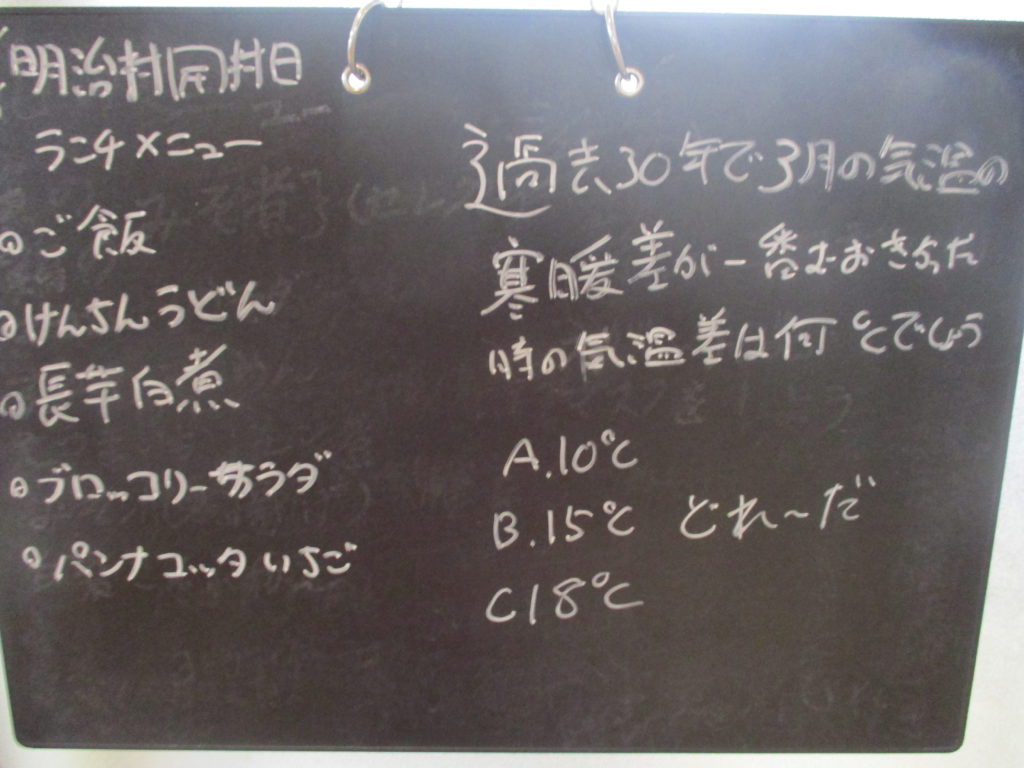 明治村開村日
ランチメニュー
ご飯
けんちんうどん
長芋白煮
ブロッコリーサラダ
パンナコッタいちご
過去30年で3月の気温の
寒暖差が一番おおきかった
時の気温差は何どでしょう
A.10℃
B.15℃ どれ〜だ
C18℃